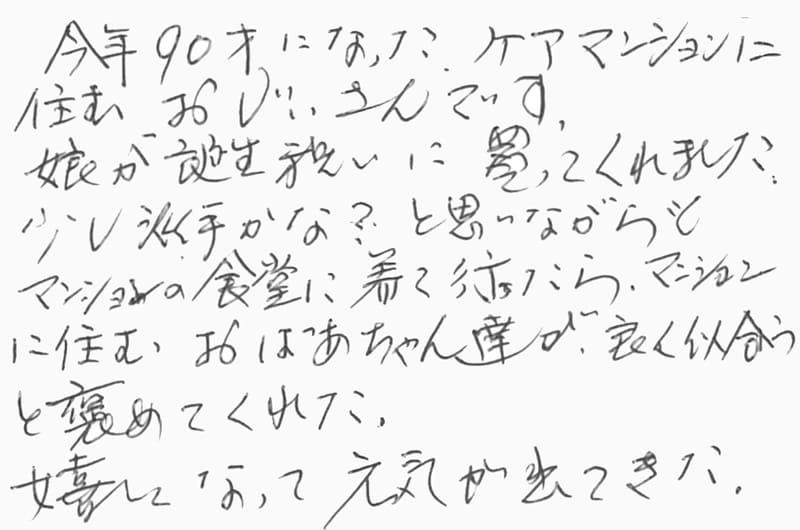 今年90才になった、ケアマンションに
住む おじいさんです。
娘が誕生祝いに買ってくれました。
少し派手かな?と思いながらも
マンションの食堂に着て行ったら、マンション
に住む おばあちゃん達が、良く似合う
と褒めてくれた。
嬉しくなって元気が出てきた。